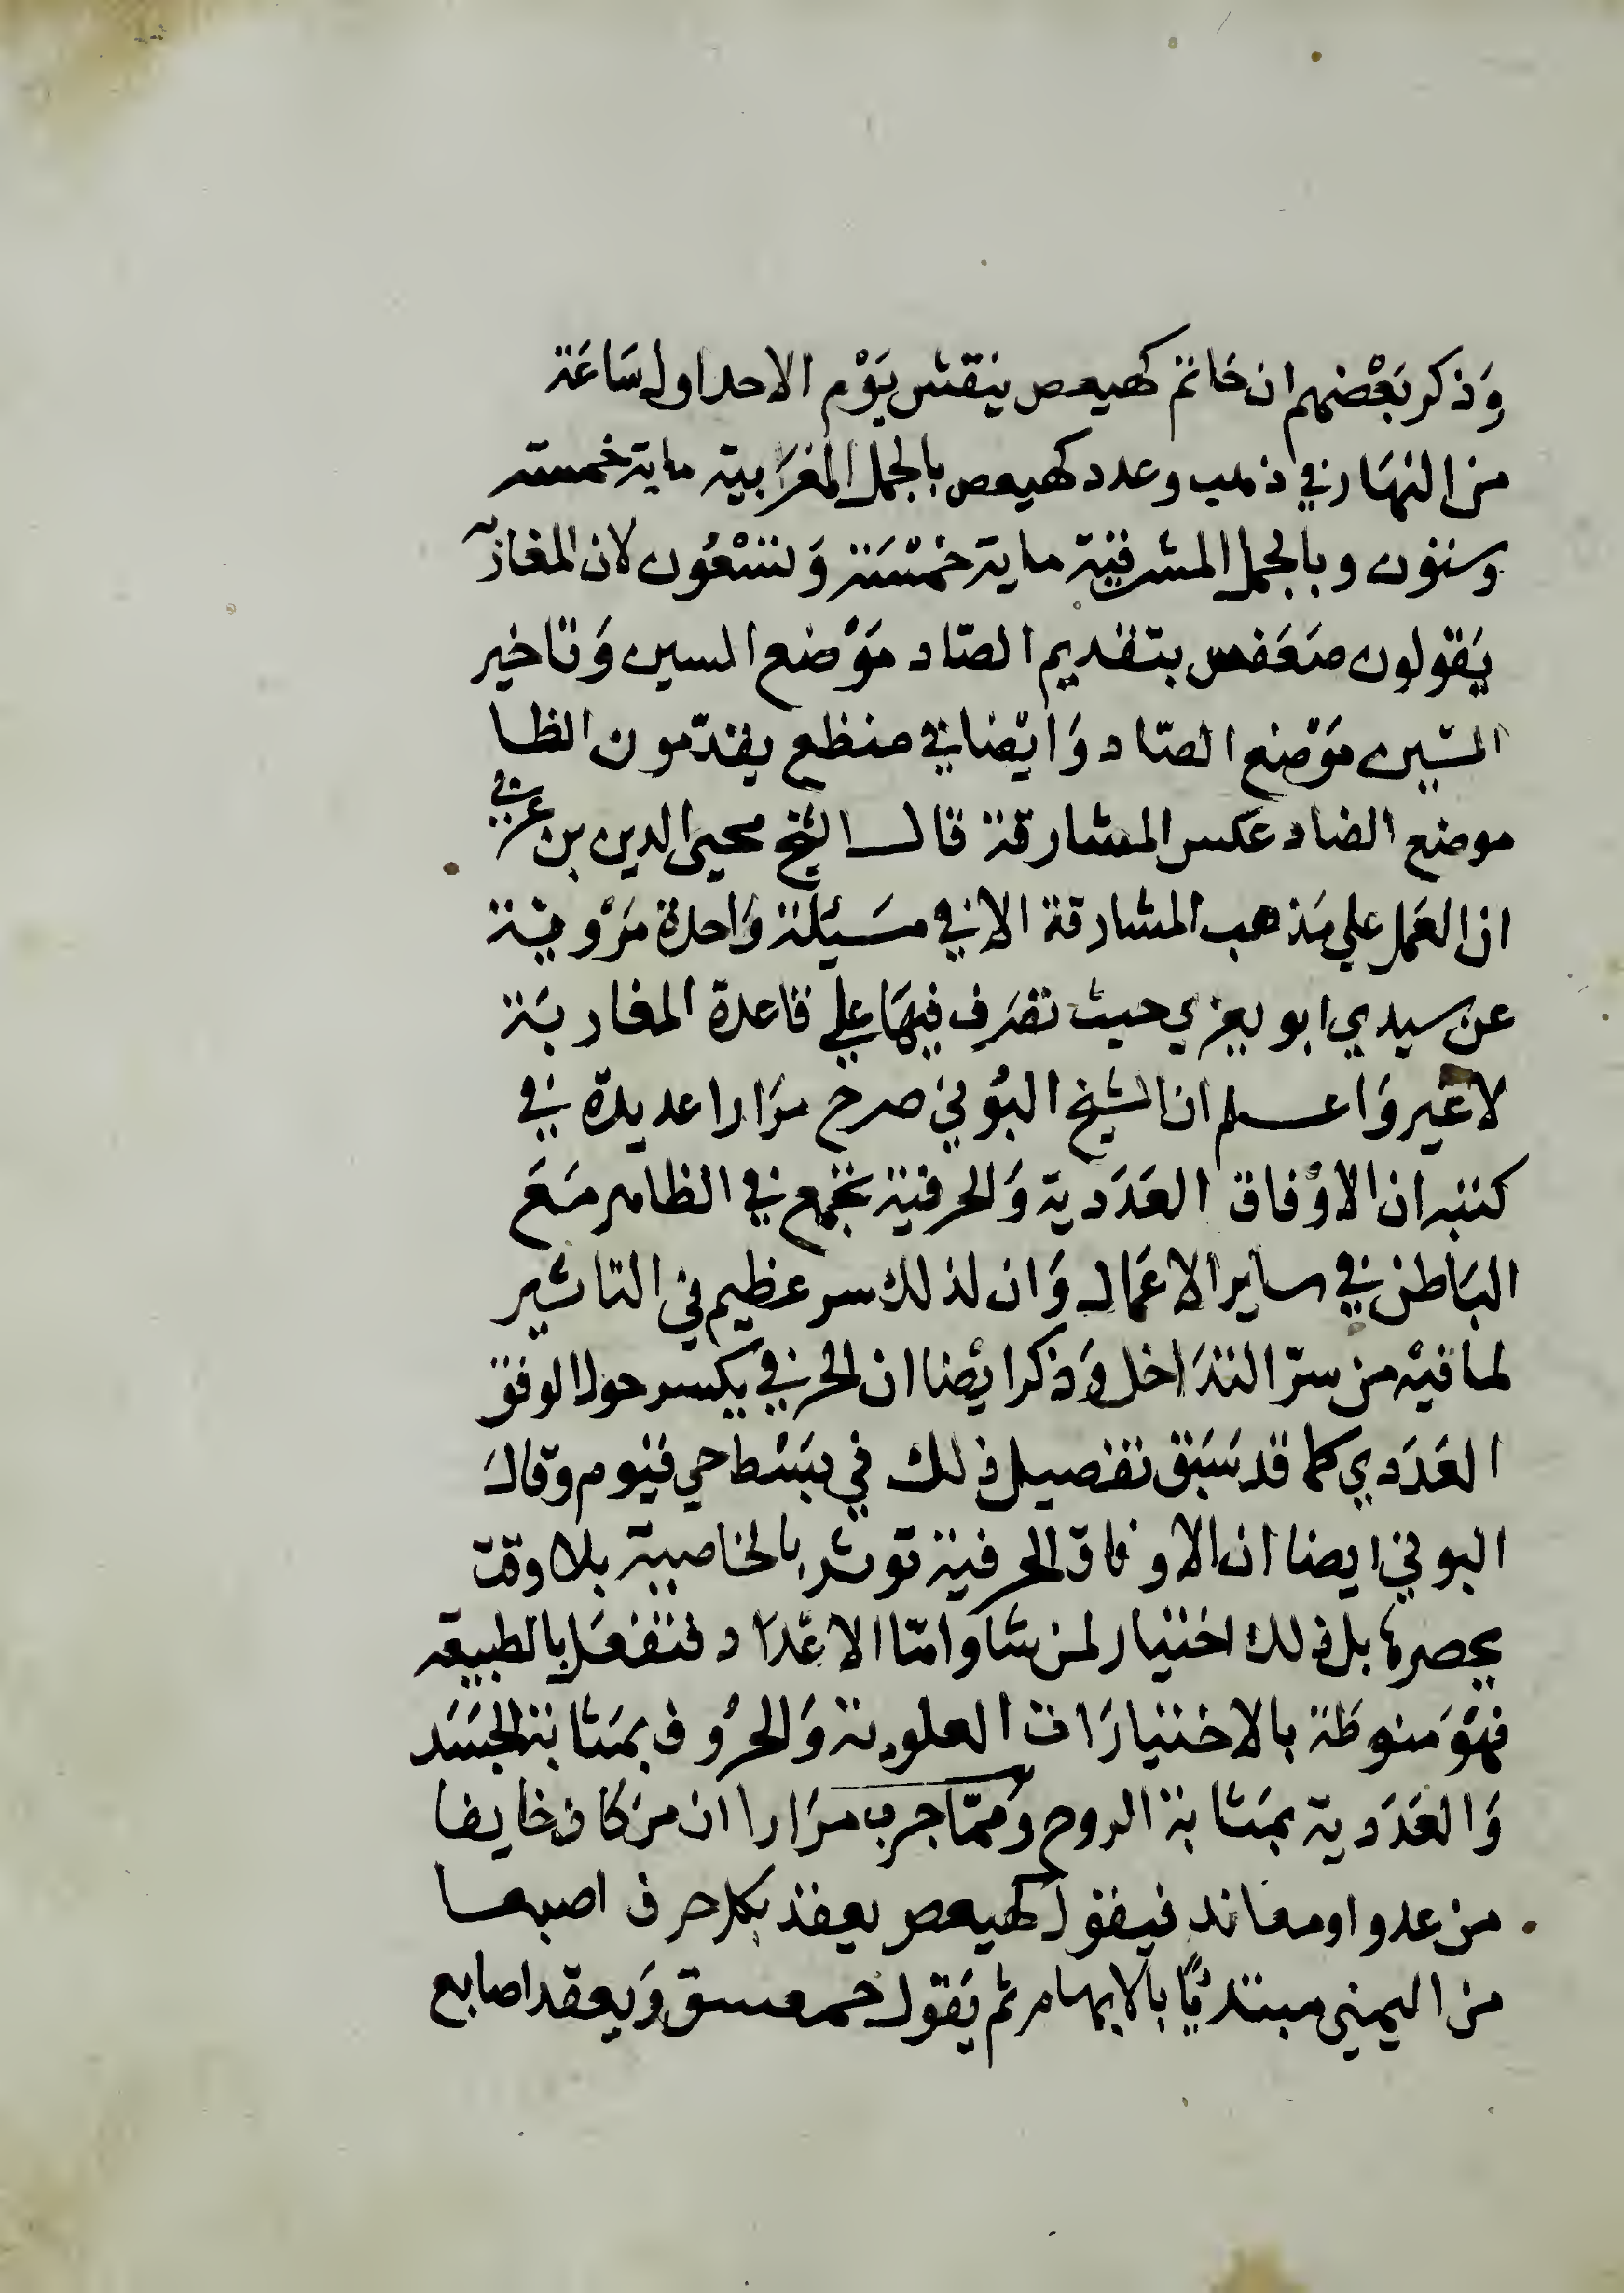 وَذكر بَعْضهم ان خَاتم كهيعص ينقش يَوْم الاحد اول سَاعَة
من النهَار في ذهب وعدد كهيعص بالجمل المغرَابية ماية خمسة
وستون وبالجمل المشرقية ماية خمْسَة وَتسْعُون لان المغاربة
يَقولون صَعَفص بتقديم الصّاد موْضع السين وَتاخير
السّين موْضع الصّاد وَايْضا في ضظع يقدّمون الظا
موضع الضاد عكس المشارقة قال الشيخ محيى الدين بن عربي
ان العَمل علي مَذهب المشارقة الا في مسَيئلة وَاحدة مَرْويّة
عن سيدي ابو يعزي حيث تصَرف فيهَا علي قاعدة المغاربَة
لا غَير وَاعلم ان الشيخ البُوني صرح مرَارا عديدة في
كتبه ان الاوْفاق العَدَدية وَالحرفية تجمع في الظاهر مَعَ
البَاطن في ساير الاعمَال وَان لذلك سر عظيم في التاثير
لما فيْه من سرّ التدَاخل وَذكر ايْضا ان الحرفي يكسر حول الوفق
العَدَدي كما قد سَبَق تفصيل ذلك في بسْط حي قيوم وقال
البوني ايضا ان الاوفاق الحرفية توثر بالخاصية بلا وقت
يحصرها بل ذلك اختيار لمن شا وامّا الاعْدَاد فتفعَل بالطبيعة
فهوَ منوطَة بالاختيارَات العلوية وَالحرُوف بمَثابة الجسَد
وَالعَدَدية بمَثابة الروح وَممّا جرب مرَارا ان من كان خايفا
من عدو او معاند فيقول كهيعص يعقد بكل حرف اصبعا
من اليمني مبتدئًا بالابهام ثم يَقول حمعسق وَيعقد اصابع